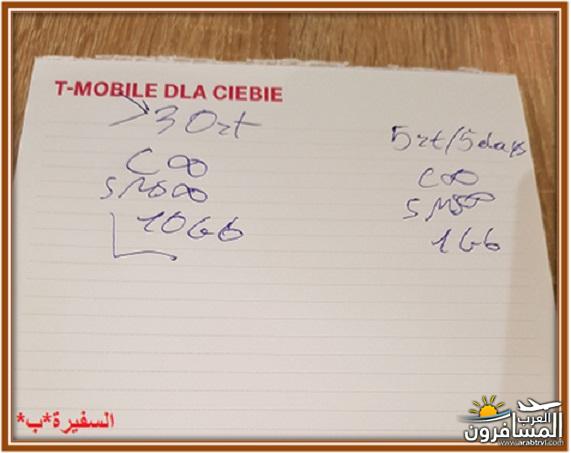 T-MOBILE DLA CIEBIE
30zt
C∞
SMS∞
10Gb
5zt/5days
C∞
SMS∞
1Gb
السفيرة*ب*
العرب
المسافرون
www.arabtrvl.com